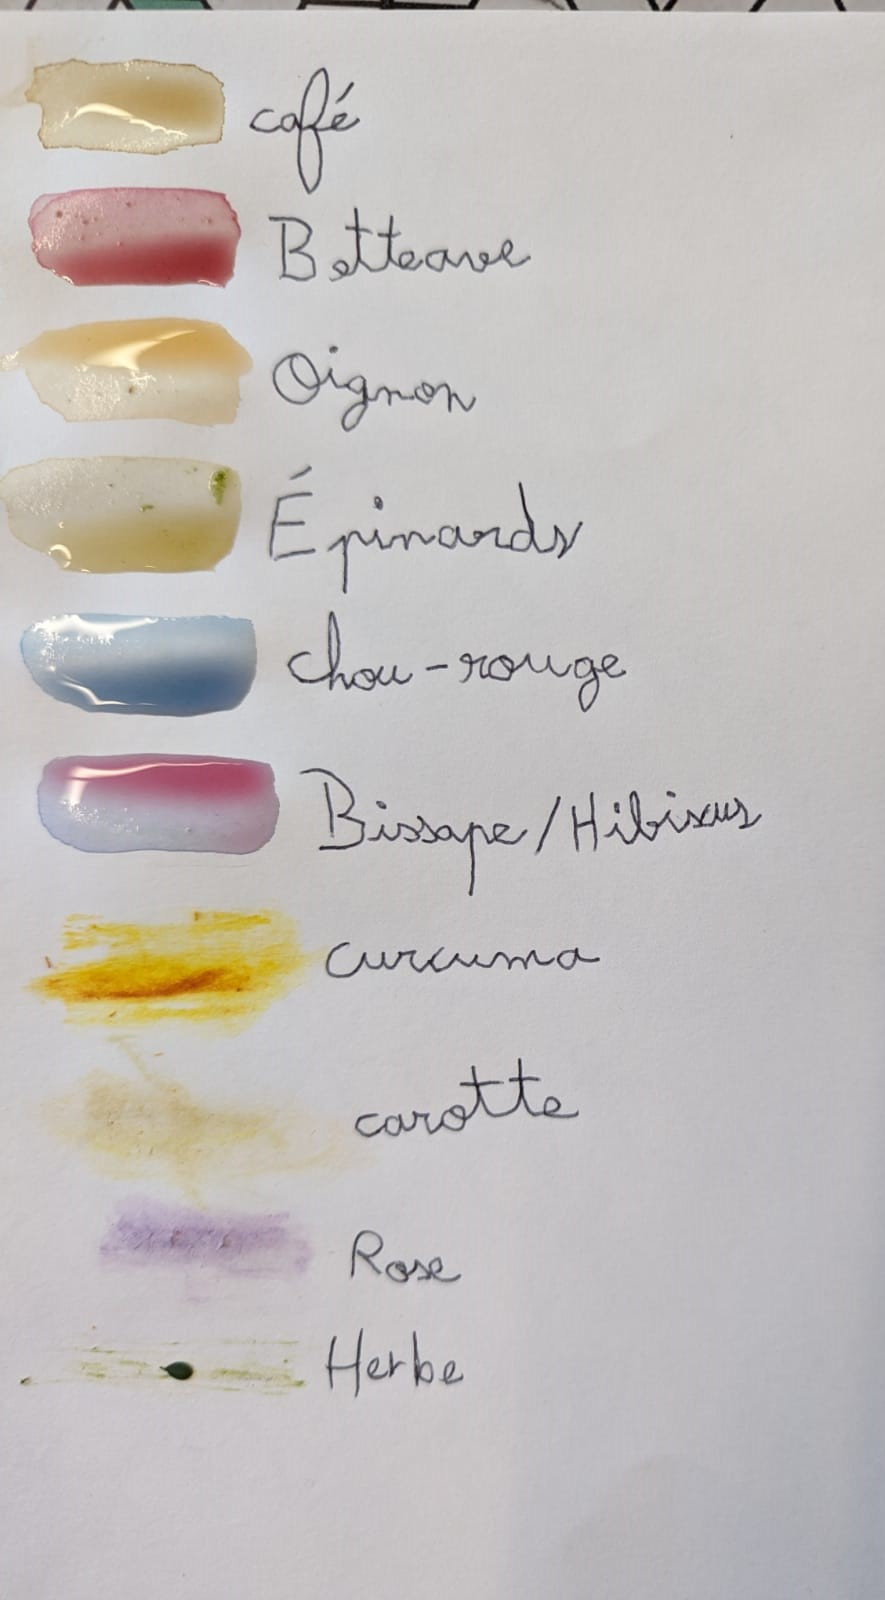 café
Betteave
Oignon
Épinards
chou-rouge
Bissape/Hibixus
curcuma
carotte
Rose
Herbe